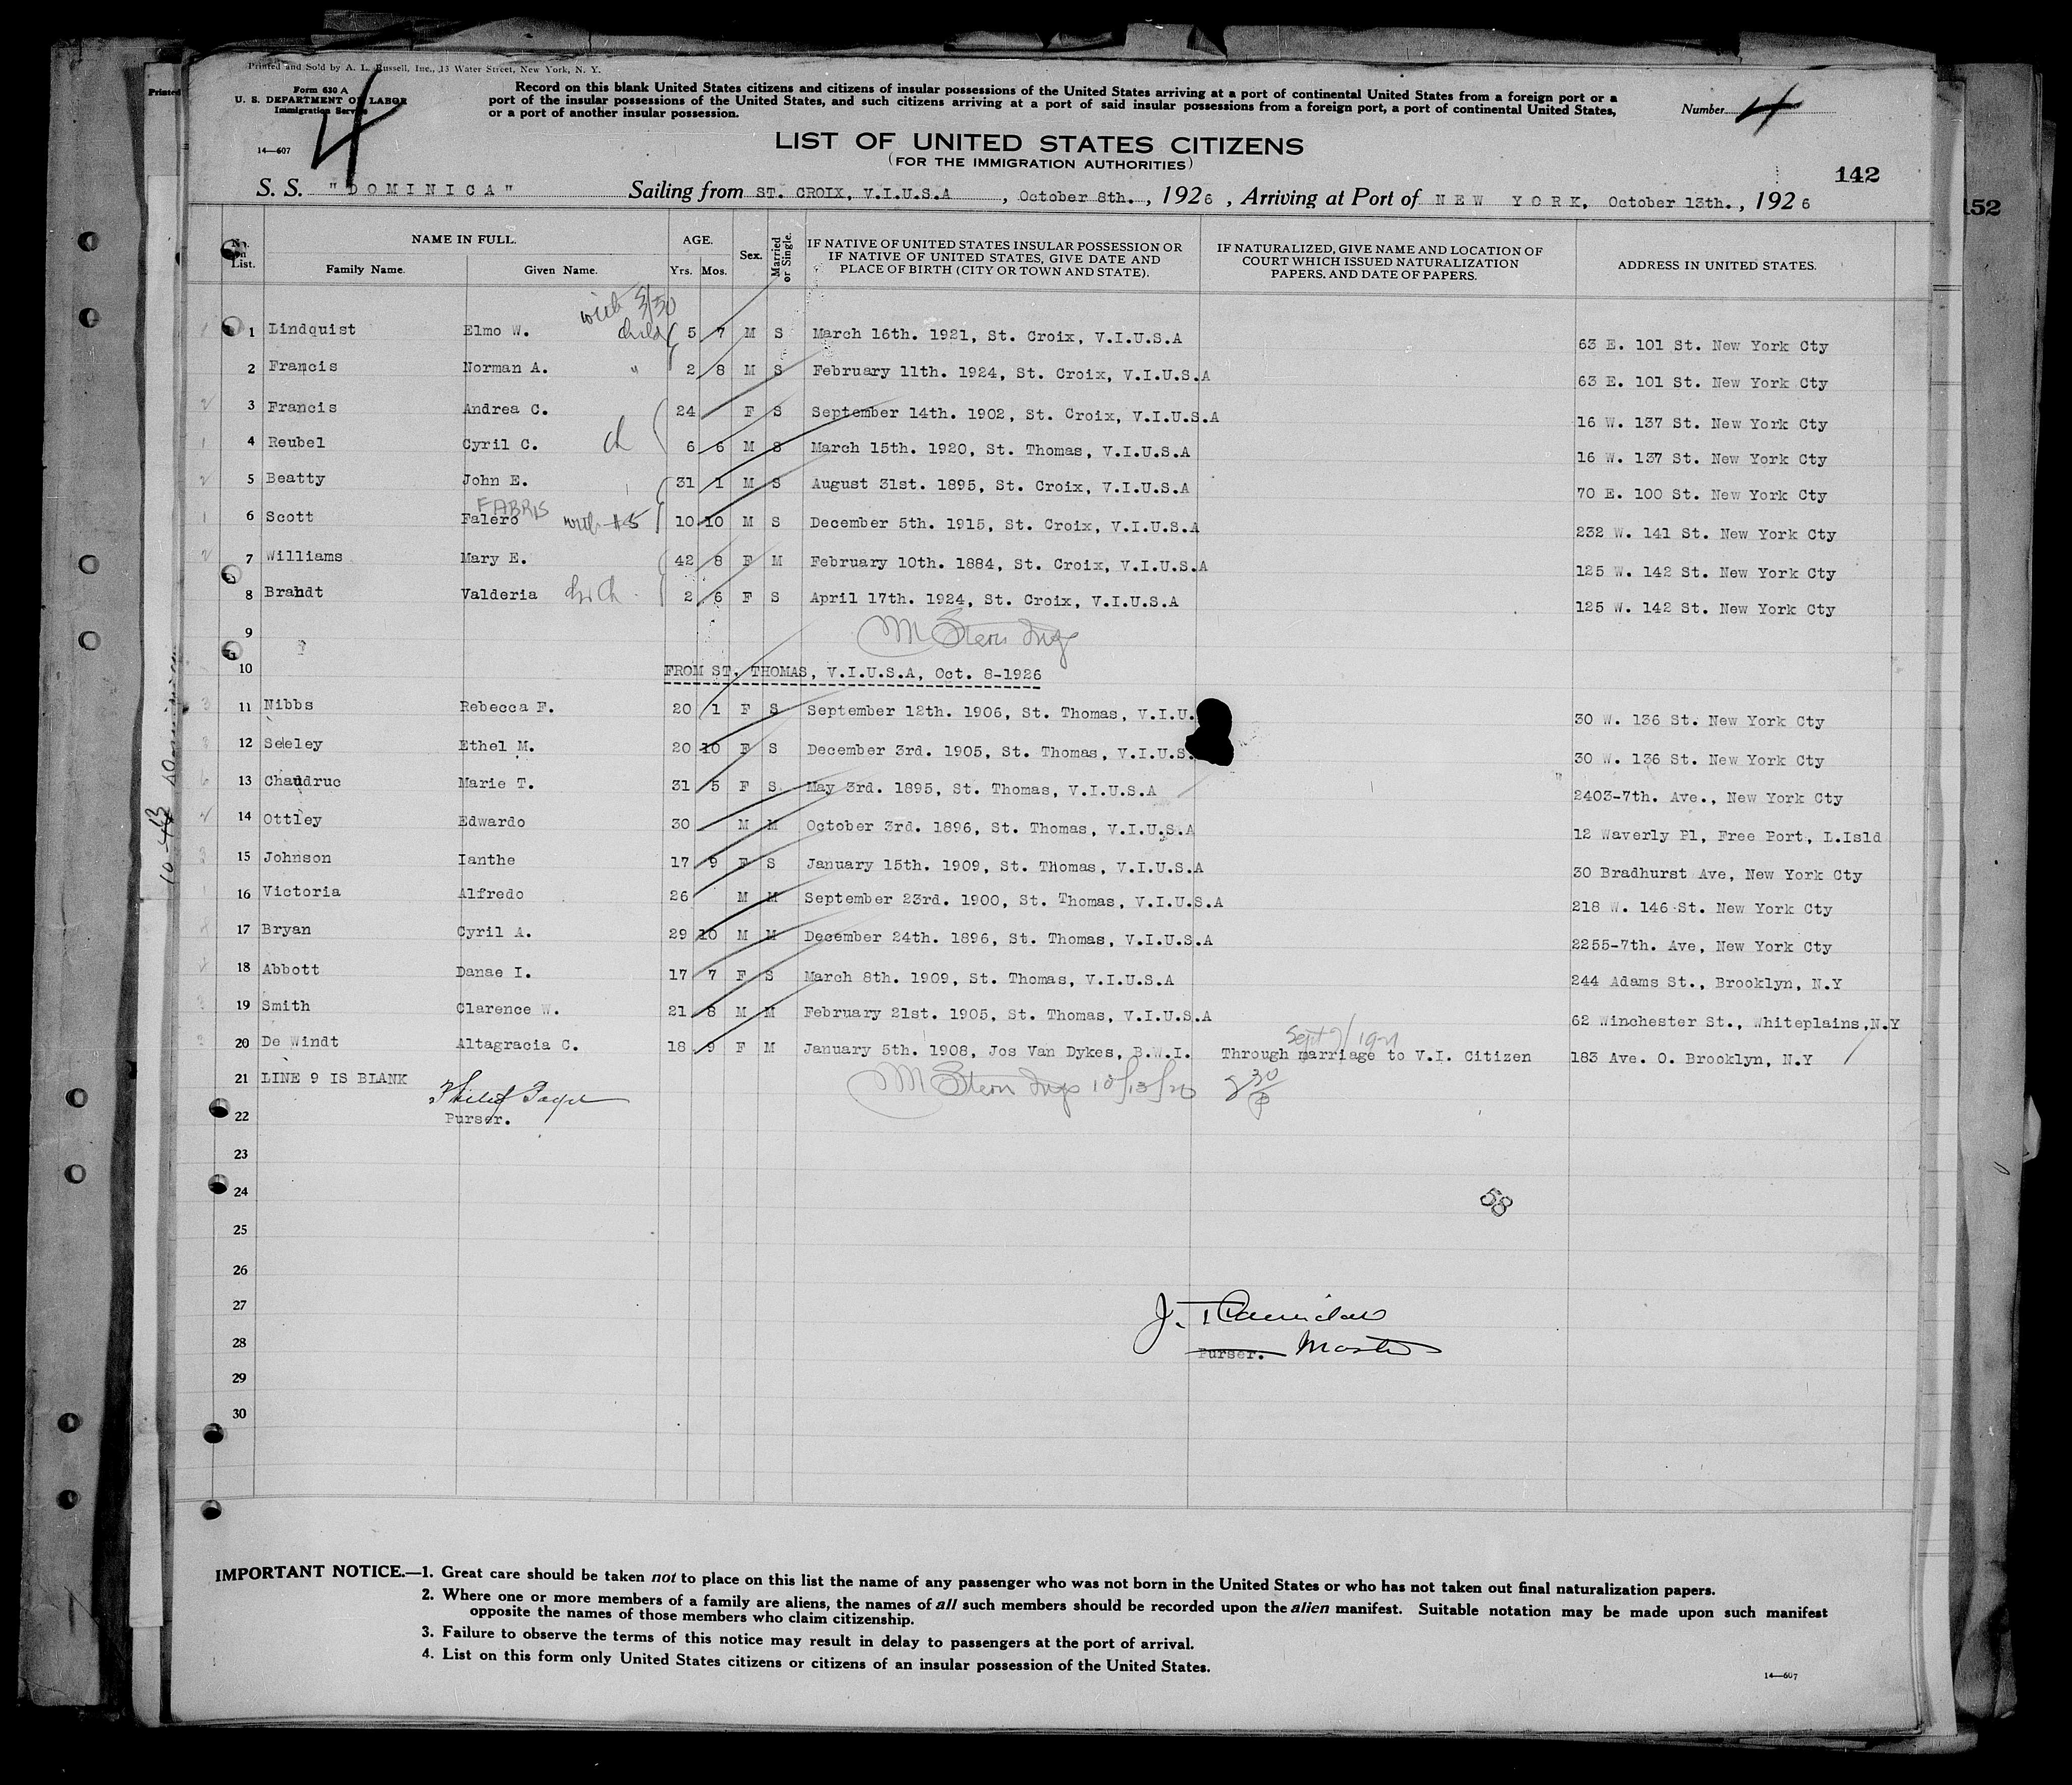 Printed and Sold by A. L. Russell, Inc., 13 Water Street, New York, N. Y.
Printed
Form 630 A
U. S. DEPARTMENT OF LABOR
Immigration Service
14—607
4
Record on this blank United States citizens and citizens of insular possessions of the United States arriving at a port of continental United States from a foreign port or a
port of the insular possessions of the United States, and such citizens arriving at a port of said insular possessions from a foreign port, a port of continental United States,
or a port of another insular possession.
Number 4
LIST OF UNITED STATES CITIZENS
(FOR THE IMMIGRATION AUTHORITIES)
142
152
S. S. "DOMINICA" Sailing from ST. CROIX, V.I.U.S.A , October 8th. , 1926 , Arriving at Port of NEW YORK, October 13th. , 1926
No. on List. NAME IN FULL. Family Name. Given Name. AGE. Yrs. Mos. Sex. Married or Single. IF NATIVE OF UNITED STATES INSULAR POSSESSION OR IF NATIVE OF UNITED STATES, GIVE DATE AND PLACE OF BIRTH (CITY OR TOWN AND STATE). IF NATURALIZED, GIVE NAME AND LOCATION OF COURT WHICH ISSUED NATURALIZATION PAPERS, AND DATE OF PAPERS. ADDRESS IN UNITED STATES.
with 3/30
1 Lindquist Elmo W. child 5 7 M S March 16th. 1921, St. Croix, V.I.U.S.A 63 E. 101 St. New York Cty
2 Francis Norman A. " 2 8 M S February 11th. 1924, St. Croix, V.I.U.S.A 63 E. 101 St. New York Cty
3 Francis Andrea C. 24 F S September 14th. 1902, St. Croix, V.I.U.S.A 16 W. 137 St. New York Cty
4 Reubel Cyril C. ch 6 6 M S March 15th. 1920, St. Thomas, V.I.U.S.A 16 W. 137 St. New York Cty
5 Beatty John E. 31 1 M S August 31st. 1895, St. Croix, V.I.U.S.A 70 E. 100 St. New York Cty
FABRIS
6 Scott Falero with #5 10 10 M S December 5th. 1915, St. Croix, V.I.U.S.A 232 W. 141 St. New York Cty
7 Williams Mary E. 42 8 F M February 10th. 1884, St. Croix, V.I.U.S.A 125 W. 142 St. New York Cty
8 Brandt Valderia 2 6 F S April 17th. 1924, St. Croix, V.I.U.S.A 125 W. 142 St. New York Cty
9 M Stern Insp
10 FROM ST. THOMAS, V.I.U.S.A, Oct. 8-1926
11 Nibbs Rebecca F. 20 1 F S September 12th. 1906, St. Thomas, V.I.U. 30 W. 136 St. New York Cty
12 Seeley Ethel M. 20 10 F S December 3rd. 1905, St. Thomas, V.I.U.S. 30 W. 136 St. New York Cty
13 Chaudruc Marie T. 31 5 F S May 3rd. 1895, St. Thomas, V.I.U.S.A 2403-7th. Ave., New York Cty
14 Ottley Edwardo 30 M M October 3rd. 1896, St. Thomas, V.I.U.S.A 12 Waverly Pl, Free Port, L.Isld
15 Johnson Ianthe 17 9 F S January 15th. 1909, St. Thomas, V.I.U.S.A 30 Bradhurst Ave, New York Cty
16 Victoria Alfredo 26 M M September 23rd. 1900, St. Thomas, V.I.U.S.A 218 W. 146 St. New York Cty
17 Bryan Cyril A. 29 10 M M December 24th. 1896, St. Thomas, V.I.U.S.A 2255-7th. Ave, New York Cty
18 Abbott Danae I. 17 7 F S March 8th. 1909, St. Thomas, V.I.U.S.A 244 Adams St., Brooklyn, N.Y
19 Smith Clarence W. 21 8 M M February 21st. 1905, St. Thomas, V.I.U.S.A 62 Winchester St., Whiteplains,N.Y
20 De Windt Altagracia C. 18 9 F M January 5th. 1908, Jos Van Dykes, B.W.I. Through marriage to V.I. Citizen 183 Ave. O. Brooklyn, N.Y
21 LINE 9 IS BLANK M Stern Insp 10/13/26
22 Purser.
23
24 58
25
26
27 J.
28 Purser. Master
29
30
IMPORTANT NOTICE.—1. Great care should be taken not to place on this list the name of any passenger who was not born in the United States or who has not taken out final naturalization papers.
2. Where one or more members of a family are aliens, the names of all such members should be recorded upon the alien manifest. Suitable notation may be made upon such manifest
opposite the names of those members who claim citizenship.
3. Failure to observe the terms of this notice may result in delay to passengers at the port of arrival.
4. List on this form only United States citizens or citizens of an insular possession of the United States.
14—607